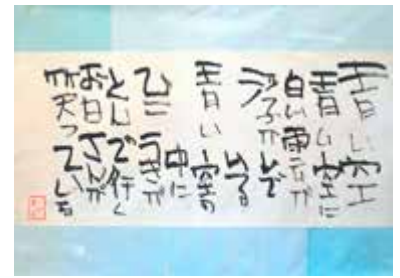 青い空
青い空に
白い雲が
うかんで
いる
青い空の
中に
ひこうきが
とんで行く
お日さんが
笑っている